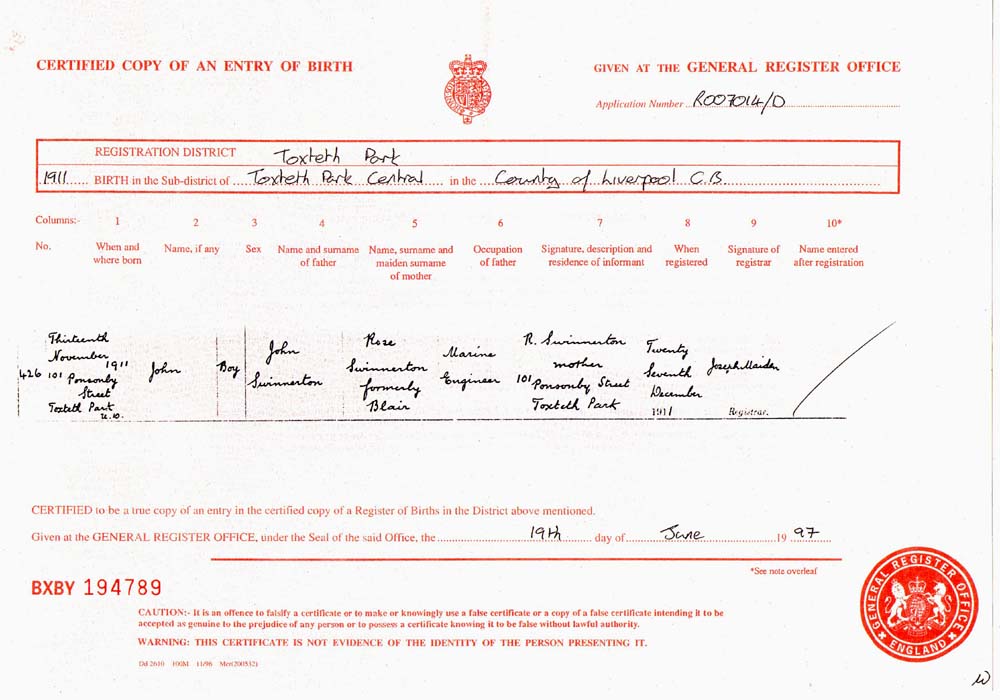 CERTIFIED COPY OF AN ENTRY OF BIRTH
GIVEN AT THE GENERAL REGISTER OFFICE
Application Number R007014/D
REGISTRATION DISTRICT Toxteth Park
1911 BIRTH in the Sub-district of Toxteth Park Central in the County of Liverpool C.B.
Columns:- 1 2 3 4 5 6 7 8 9 10*
No. When and where born
Name, if any
Sex
Name and surname of father
Name, surname and maiden surname of mother
Occupation of father
Signature, description and residence of informant
When registered
Signature of registrar
Name entered after registration
426
Thirteenth
November
1911
101 Ponsonby
Street
Toxteth Park
U.D.
John
Boy
John
Swinnerton
Rose
Swinnerton
formerly
Blair
Marine
Engineer
R. Swinnerton
mother
101 Ponsonby Street
Toxteth Park
Twenty
Seventh
December
1911
Joseph Maiden
Registrar.
CERTIFIED to be a true copy of an entry in the certified copy of a Register of Births in the District above mentioned.
Given at the GENERAL REGISTER OFFICE, under the Seal of the said Office, the 19th day of June 19 97
*See note overleaf
BXBY 194789
CAUTION:- It is an offence to falsify a certificate or to make or knowingly use a false certificate or a copy of a false certificate intending it to be
accepted as genuine to the prejudice of any person or to possess a certificate knowing it to be false without lawful authority.
WARNING: THIS CERTIFICATE IS NOT EVIDENCE OF THE IDENTITY OF THE PERSON PRESENTING IT.
Dd 2610 100M 11/96 Mcr(200532)
GENERAL REGISTER OFFICE
ENGLAND
W